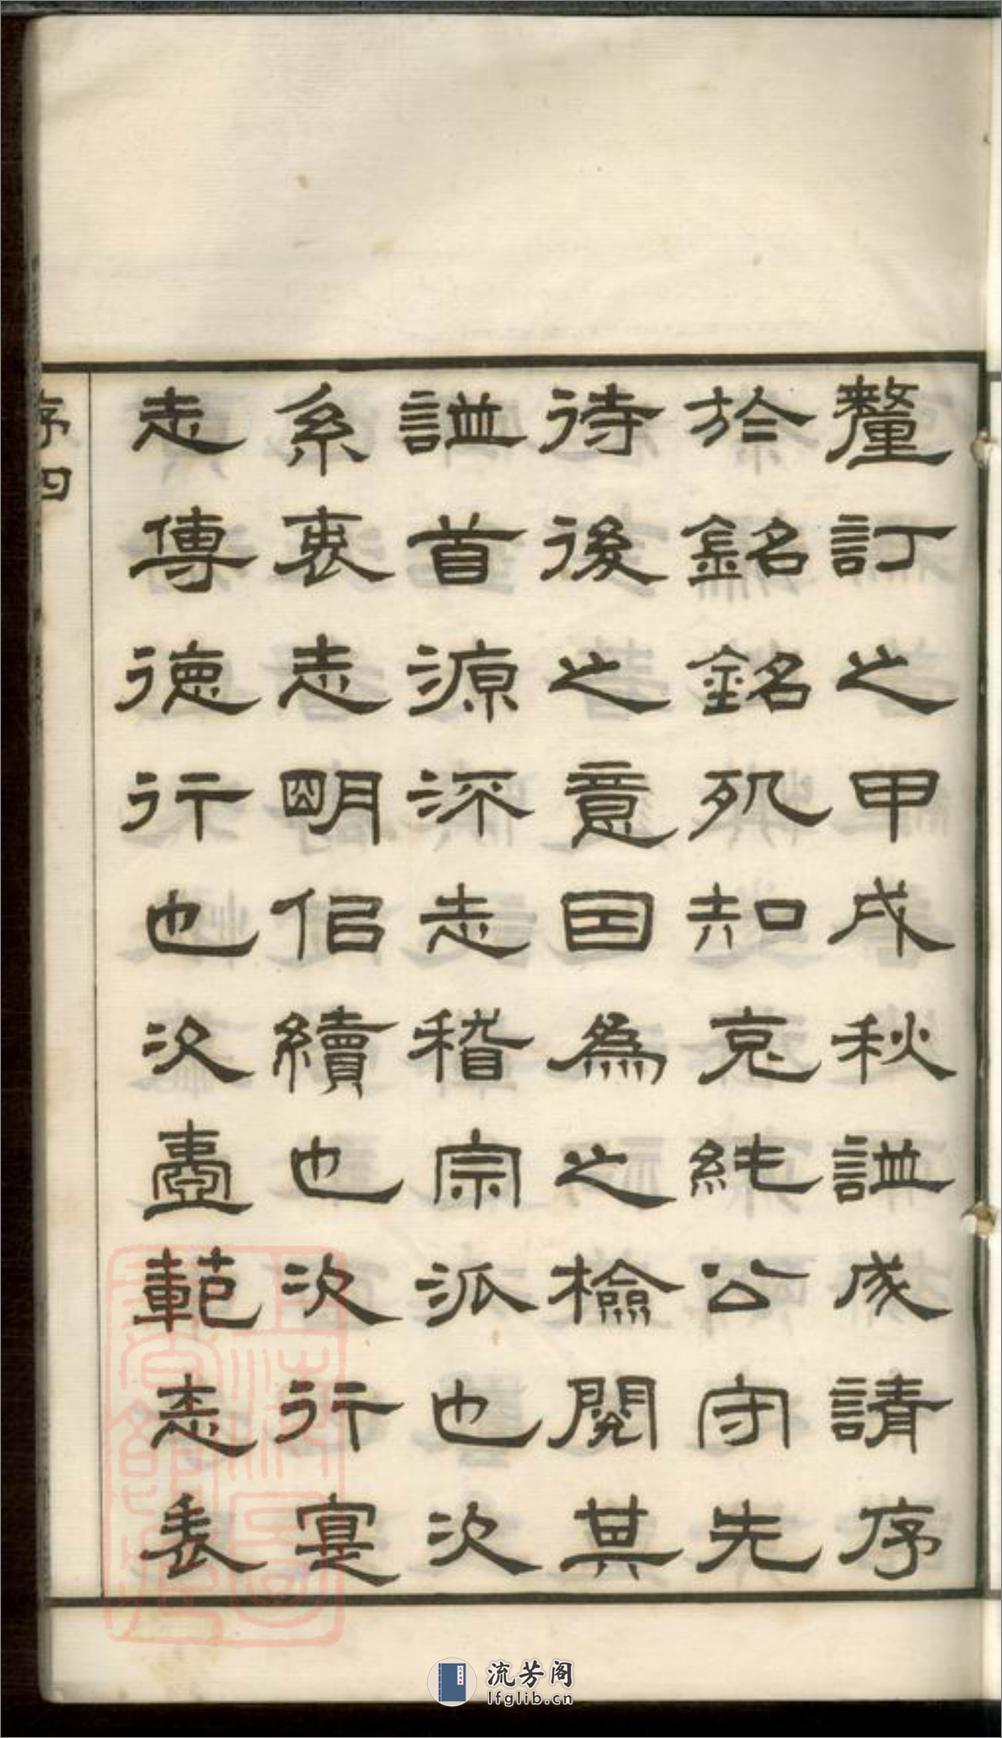 釐訂之甲戌秋譜成請序
於銘銘夙知哀純公守先
待後之意因為之檢閱其
譜首源流志稽宗派也次
系表志明佋續也次行實
志傳德行也次壼範志表
序四
流芳阁
lfglib.cn